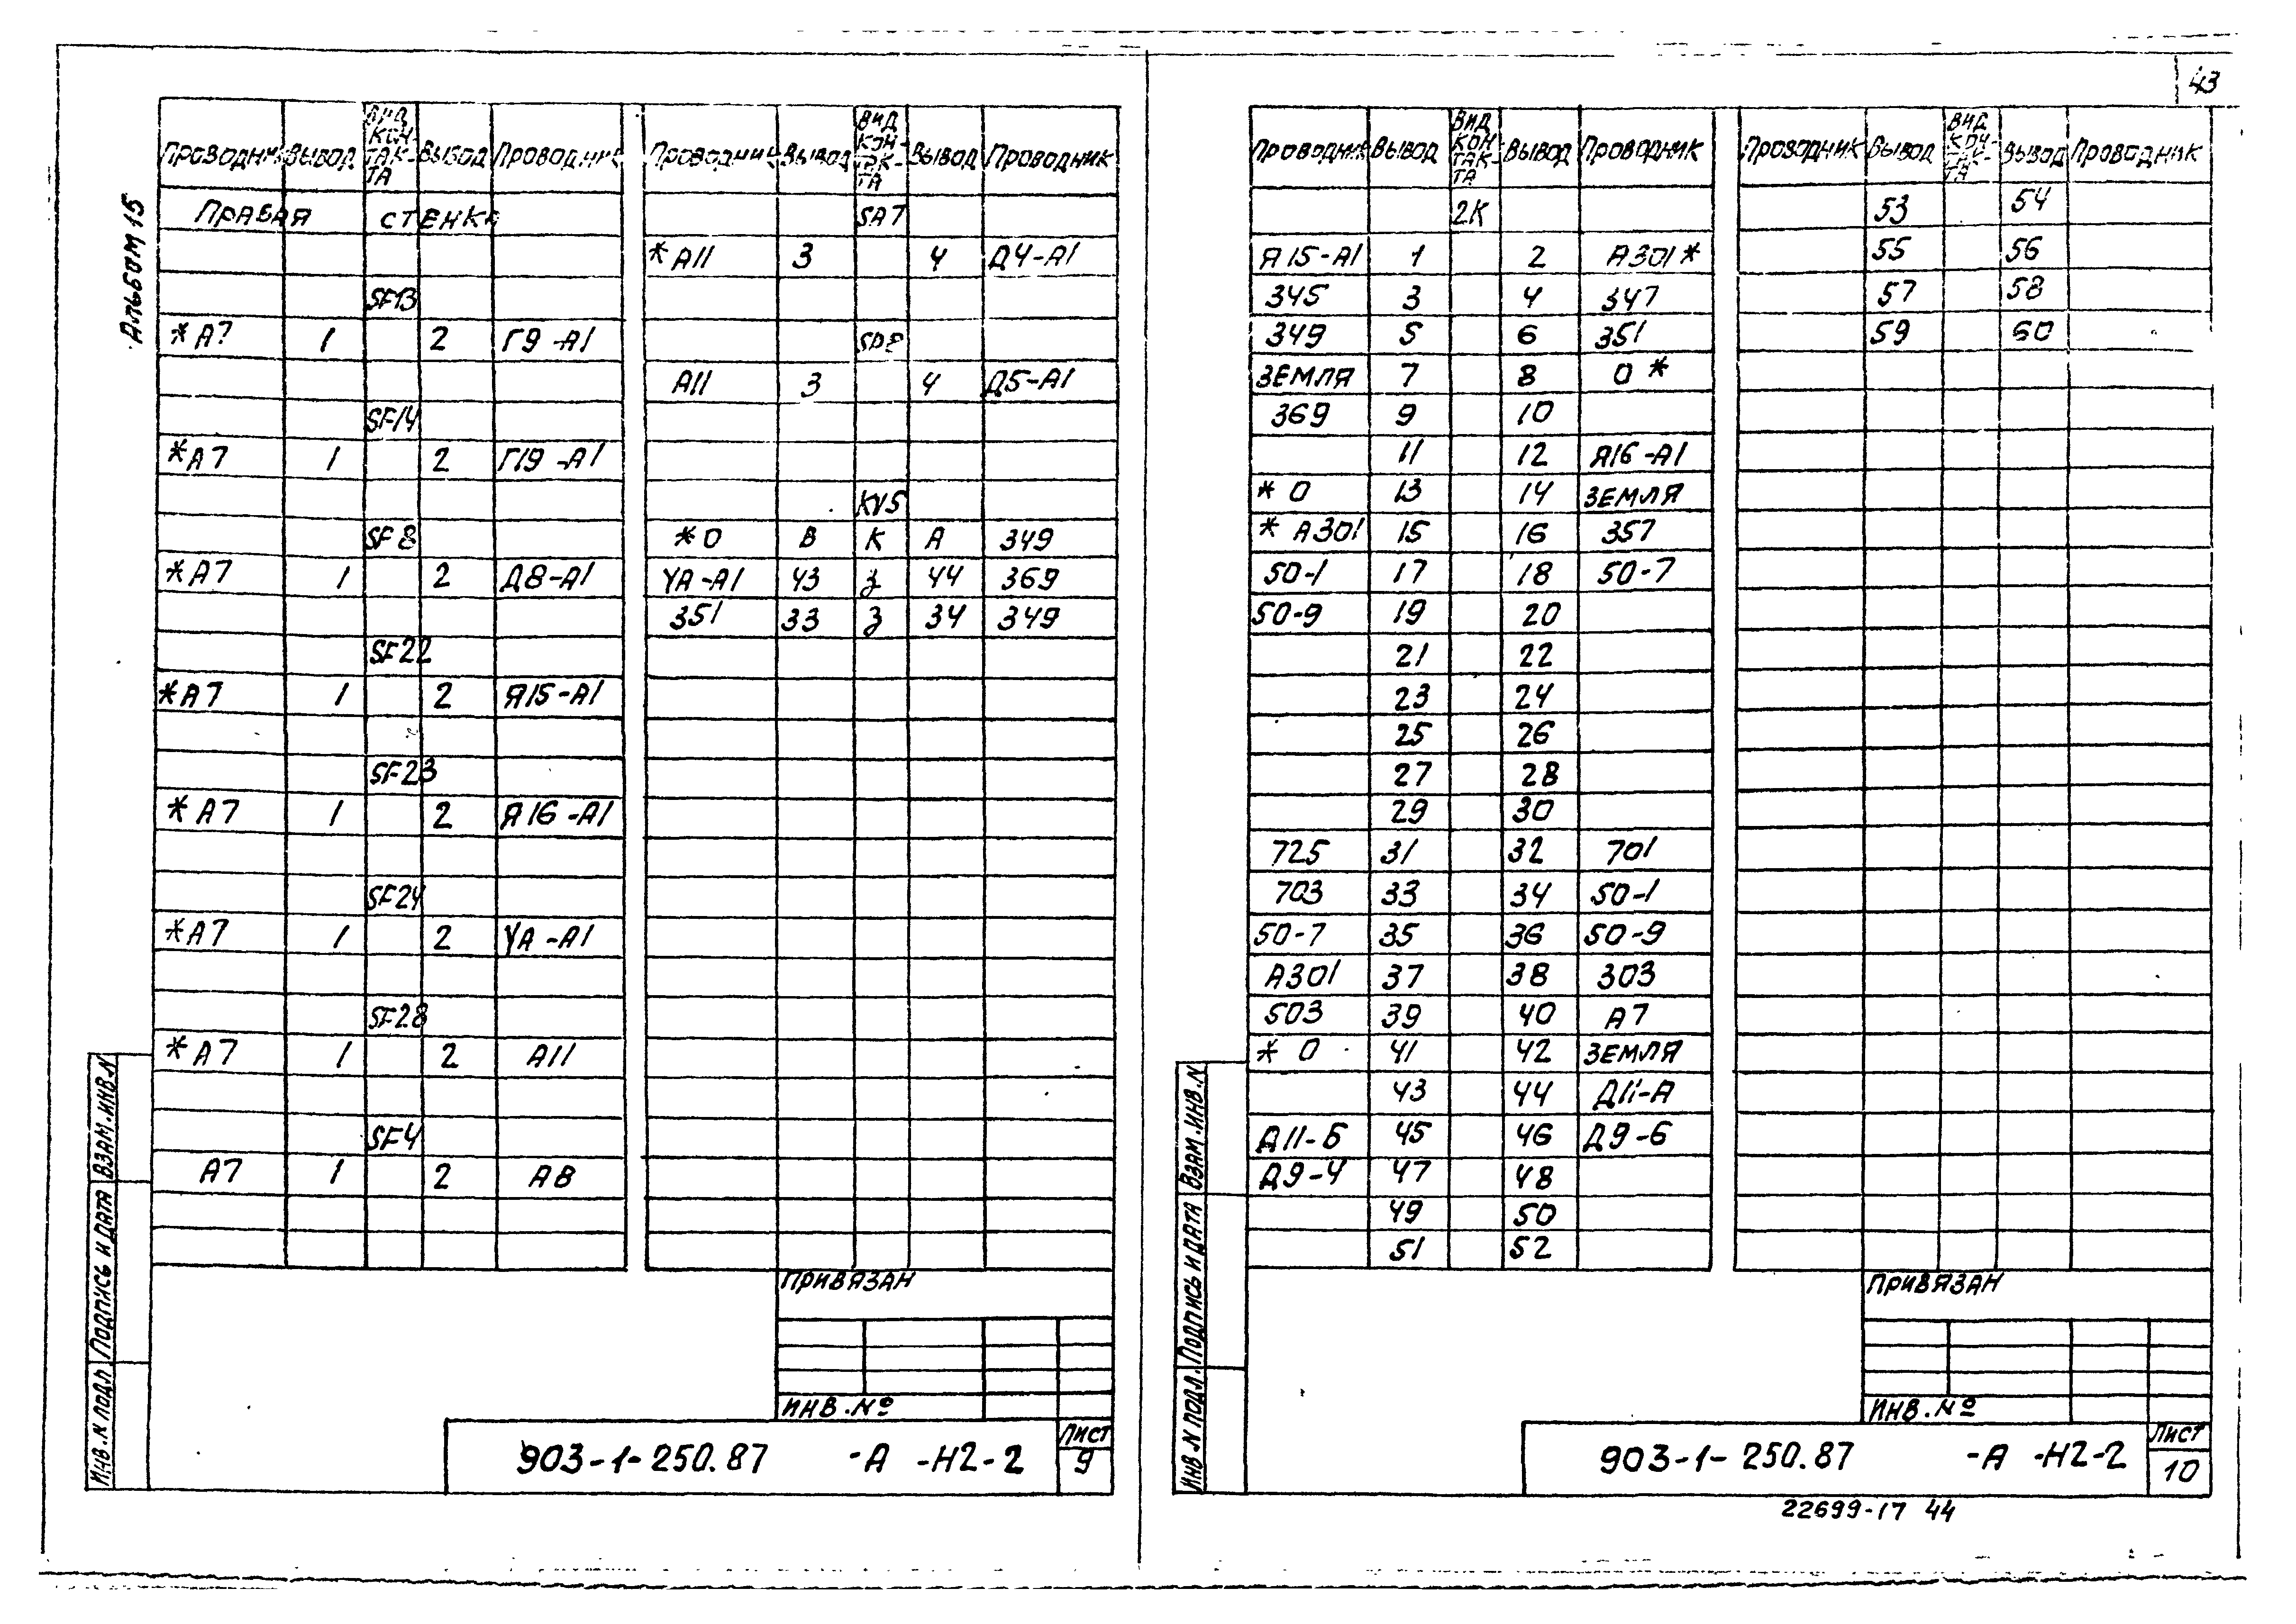 43
Альбом 15
Проводник Вывод Вид контакта Вывод Проводник Проводник Вывод Вид контакта Вывод Проводник
Правая стенка
SF13
*А7 1 2 Г9-А1
SF14
*А7 1 2 Г19-А1
SF8
*А7 1 2 Д8-А1
SF22
*А7 1 2 Я15-А1
SF23
*А7 1 2 Я16-А1
SF24
*А7 1 2 УА-А1
SF28
*А7 1 2 А11
SF4
А7 1 2 А8
SA7
*А11 3 4 Д4-А1
А11 3 4 Д5-А1
KV5
*0 В К А 349
УА-А1 43 з 44 369
351 33 з 34 349
Привязан
Инв.№
903-1-250.87 -А -Н2-2
Лист
9
Инв.N подл. Подпись и дата Взам.инв.N
Проводник Вывод Вид контакта Вывод Проводник Проводник Вывод Вид контакта Вывод Проводник
2К
Я15-А1 1 2 А301*
345 3 4 347
349 5 6 351
Земля 7 8 0*
369 9 10
11 12 Я16-А1
*0 13 14 Земля
*А301 15 16 357
50-1 17 18 50-7
50-9 19 20
21 22
23 24
25 26
27 28
29 30
725 31 32 701
703 33 34 50-1
50-7 35 36 50-9
А301 37 38 303
503 39 40 А7
*0 41 42 Земля
43 44 Д11-А
Д11-Б 45 46 Д9-6
Д9-4 47 48
49 50
51 52
53 54
55 56
57 58
59 60
Привязан
Инв.№
903-1-250.87 -А -Н2-2
Лист
10
Инв.N подл. Подпись и дата Взам.инв.N
22699-17 44